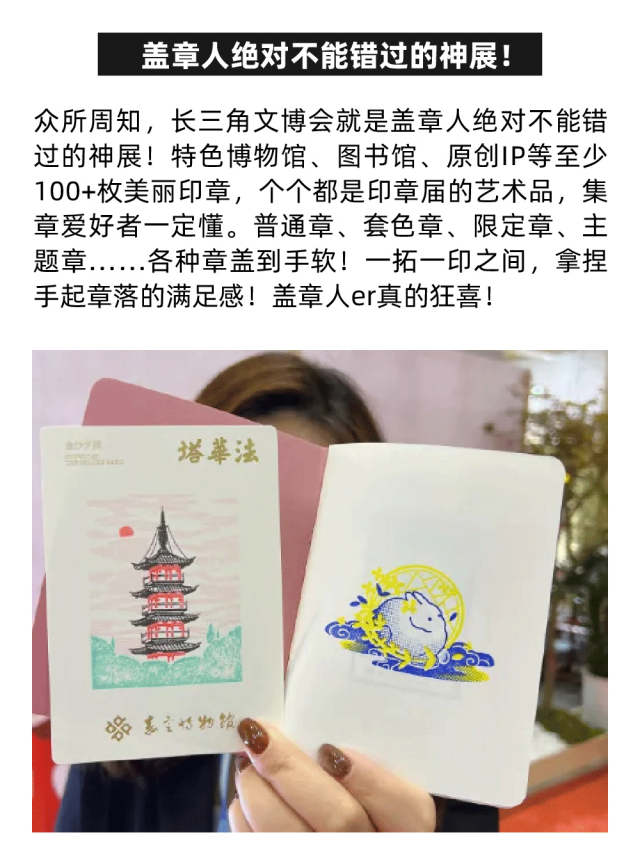 盖章人绝对不能错过的神展！
众所周知，长三角文博会就是盖章人绝对不能错
过的神展！特色博物馆、图书馆、原创IP等至少
100+枚美丽印章，个个都是印章届的艺术品，集
章爱好者一定懂。普通章、套色章、限定章、主
题章……各种章盖到手软！一拓一印之间，拿捏
手起章落的满足感！盖章人er真的狂喜！
塔華法